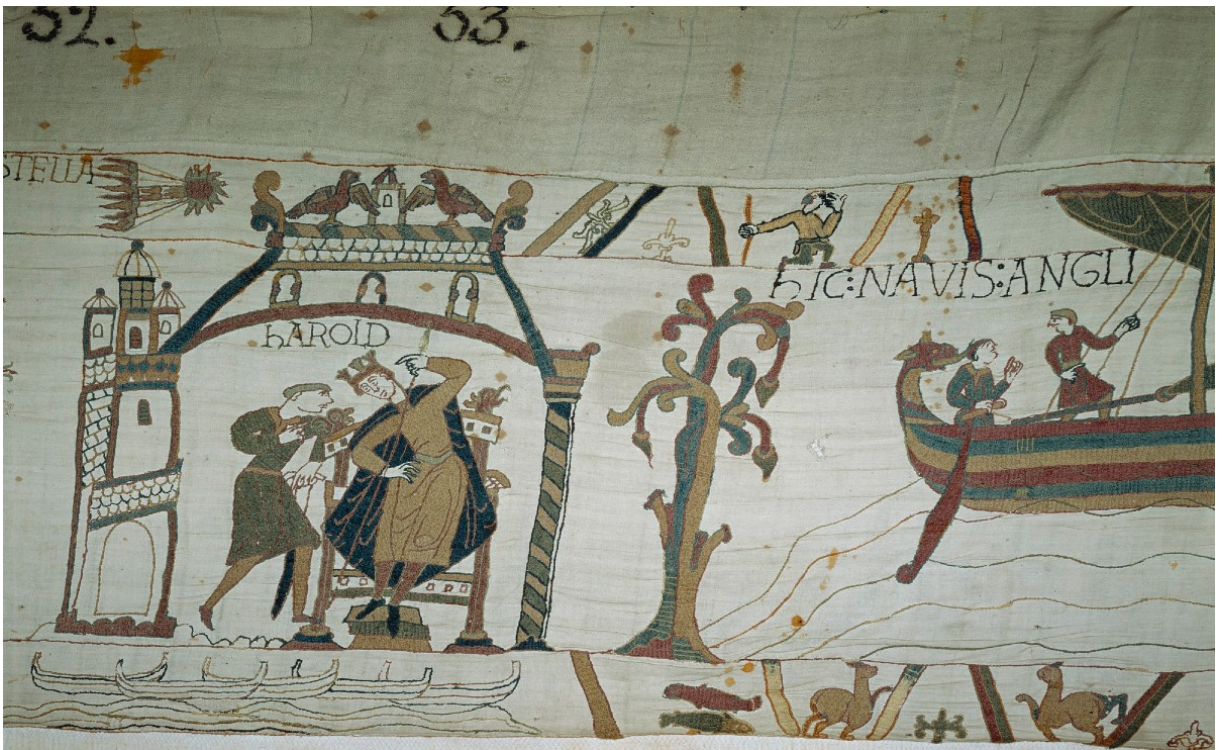 32. 33.
STELLÃ
hAROLD
hIC:NAVIS:ANGLI